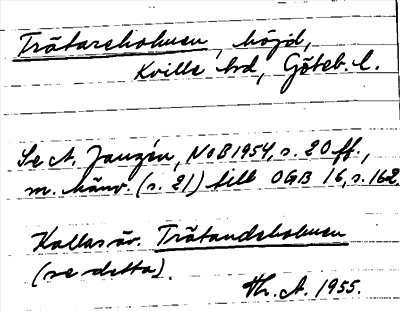 Trätareholmen, höjd,
Kville hd, Göteb. l.
Se A. Janzén, NoB 1954, s. 20 ff.,
m. hänv. (s. 21) till OGB 16, s. 162.
Kallas äv. Trätandeholmen
(se detta).
Th. A. 1955.